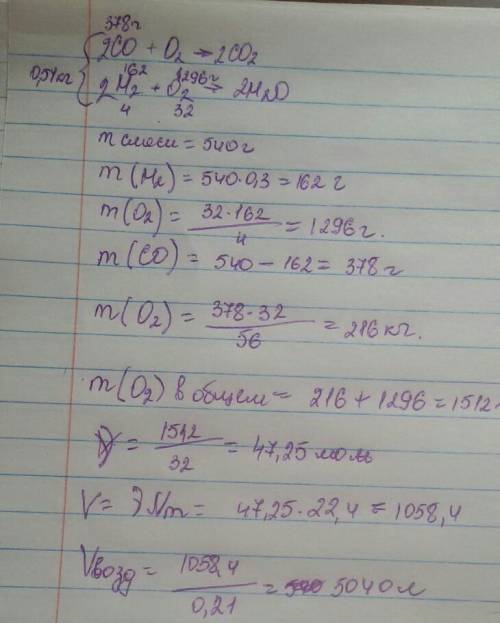 378г
2CO + O₂ → 2CO₂
0,54кг
162 1296г
2H₂ + O₂ → 2H₂O
4 32
m смеси = 540г
m (H₂) = 540·0,3 = 162 г
m (O₂) = 32·162 / 4 = 1296г.
m (CO) = 540 – 162 = 378 г
m (O₂) = 378·32 / 56 = 216 кг.
m (O₂) в общем = 216 + 1296 = 1512
= 1512 / 32 = 47,25 моль
V = νVm = 47,25·22,4 = 1058,4
Vвозд = 1058,4 / 0,21 = 5040 л